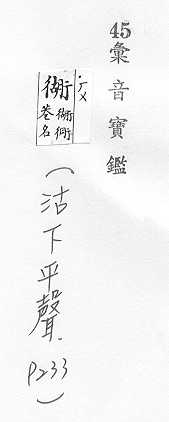 45彙音寶鑑
衚
衚衕
巷名
(沽下平聲. P233)